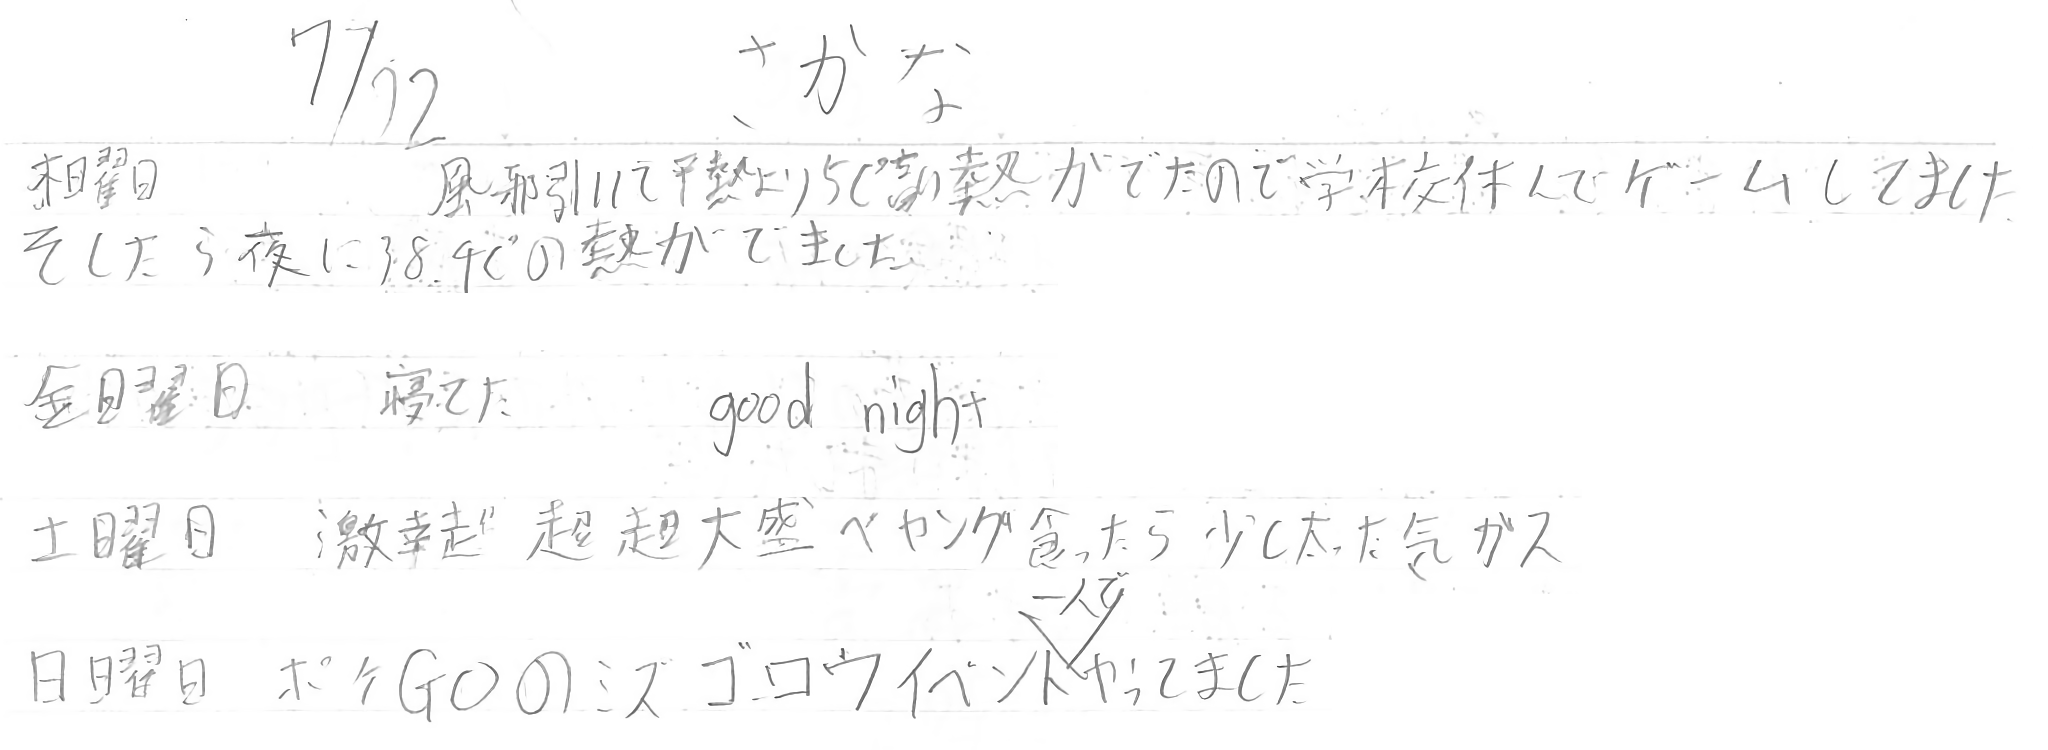 7/22 さかな
木曜日 風邪引いて平熱より5C°高い熱がでたので学校休んでゲームしてました
そしたら夜に38.4C°の熱がでました
金曜日 寝てた good night
土曜日 激辛超超超大盛ペヤング食ったら少し太った気がス
一人で
日曜日 ポケGOのミズゴロウイベントやってました